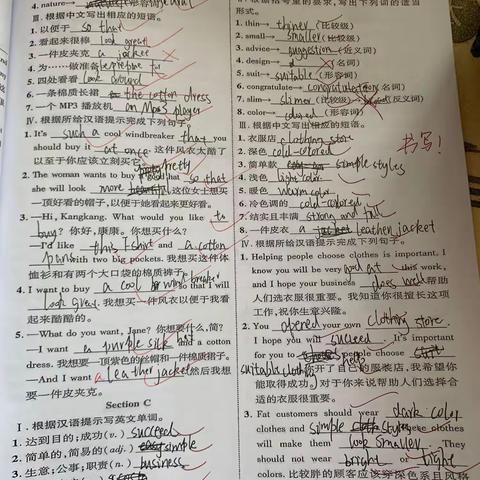 4. nature→ natural (形容词)
Ⅲ. 根据中文写出相应的短语。
1. 以便于 so that
2. 看起来很棒 look great
3. 一件皮夹克 a jacket
4. 为……做准备 prepare
5. 四处看看 look around
6. 一条棉质长裙 the cotton dress
7. 一个 MP3 播放机 an MP3 player
Ⅳ. 根据所给汉语提示完成下列句子。
1. It's such a cool windbreaker that you
should buy it at once. 这件风衣太酷了
以至于你应该立刻买它。
2. The woman wants to buy hat so that
she will look more pretty 这位女士想买
一顶好看的帽子,以便于她看起来更好看。
3. —Hi, Kangkang. What would you like to
buy? 你好,康康。你想买什么?
—I'd like this T-shirt and a cotton
pants with two big pockets. 我想买这件体
恤衫和有两个大口袋的棉质裤子。
4. I want to buy a cool so that I will
look great. 我想买一件风衣以便于我看
起来酷酷的。
5. —What do you want, Jane? 你想要什么,简?
—I want a purple silk and a cotton
dress. 我想要一顶紫色的丝帽和一件棉裙子。
—And I want a leather jacket. 然后我想
要一件皮夹克。
Section C
Ⅰ. 根据汉语提示写出英文单词。
1. 达到目的;成功(v.) succeed
2. 简单的,简易的(adj.) simple
3. 生意;公事;职责(n.) business
形式。
1. thin→ thiner (比较级)
2. small→ smaller (比较级)
3. advice→ suggestion (近义词)
4. design→ (名词)
5. suit→ suitable (形容词)
6. congratulate→ congratulation (名词)
7. slim→ slimer (比较级) (反义词)
8. color→ colored (形容词)
Ⅲ. 根据中文写出相应的短语。
书写!
1. 衣服店 clothing store
2. 深色 cold-colored
3. 简单款 simple styles
4. 浅色 light color
5. 暖色 warm color
6. 冷色调的 cold-colored
7. 结实且丰满 strong and full
8. 一件皮衣 a leather jacket
Ⅳ. 根据所给汉语提示完成下列句子。
1. Helping people choose clothes is important. I
know you will be very good at this work,
and I hope your business does well. 帮助
人们选衣服很重要。我知道你很擅长这项
工作,祝你生意兴隆。
2. You opened your own clothing store.
I hope you will succeed. It's important
for you to people choose
suitable clothes. 你开了自己的服装店,我希望你
能取得成功。对于你来说帮助人们选择合
适的衣服很重要。
3. Fat customers should wear dark color
clothes and simple styles. These clothes
will make them look smaller. They
should not wear bright or tight
colors. 比较胖的顾客应该穿深色系且风格